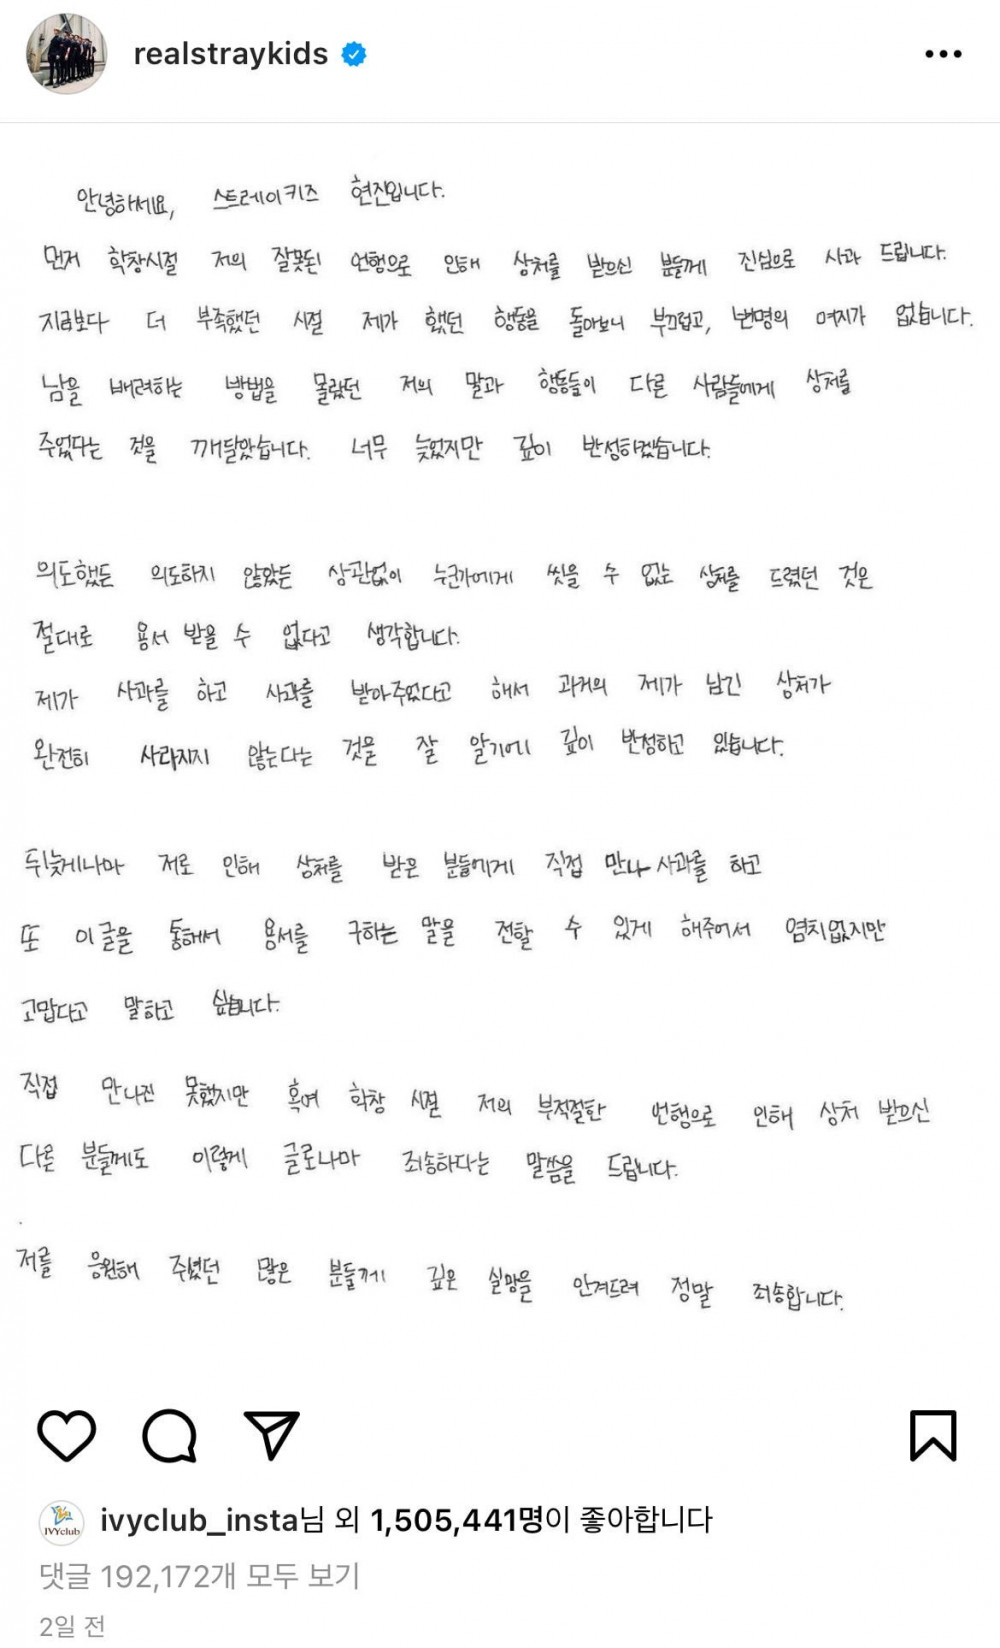 realstraykids
안녕하세요, 스트레이키즈 현진입니다.
먼저 학창시절 저의 잘못된 언행으로 인해 상처를 받으신 분들께 진심으로 사과 드립니다.
지금보다 더 부족했던 시절 제가 했던 행동을 돌아보니 부끄럽고, 변명의 여지가 없습니다.
남을 배려하는 방법을 몰랐던 저의 말과 행동들이 다른 사람들에게 상처를
주었다는 것을 깨달았습니다. 너무 늦었지만 깊이 반성하겠습니다.
의도했든 의도하지 않았든 상관없이 누군가에게 씻을 수 없는 상처를 드렸던 것은
절대로 용서 받을 수 없다고 생각합니다.
제가 사과를 하고 사과를 받아주었다고 해서 과거의 제가 남긴 상처가
완전히 사라지지 않는다는 것을 잘 알기에 깊이 반성하고 있습니다.
뒤늦게나마 저로 인해 상처를 받은 분들에게 직접 만나 사과를 하고
또 이 글을 통해서 용서를 구하는 말을 전할 수 있게 해주어서 염치없지만
고맙다고 말하고 싶습니다.
직접 만나진 못했지만 혹여 학창 시절 저의 부적절한 언행으로 인해 상처 받으신
다른 분들께도 이렇게 글로나마 죄송하다는 말씀을 드립니다.
저를 응원해 주셨던 많은 분들께 깊은 실망을 안겨드려 정말 죄송합니다.
IVYclub
ivyclub_insta님 외 1,505,441명이 좋아합니다
댓글 192,172개 모두 보기
2일 전